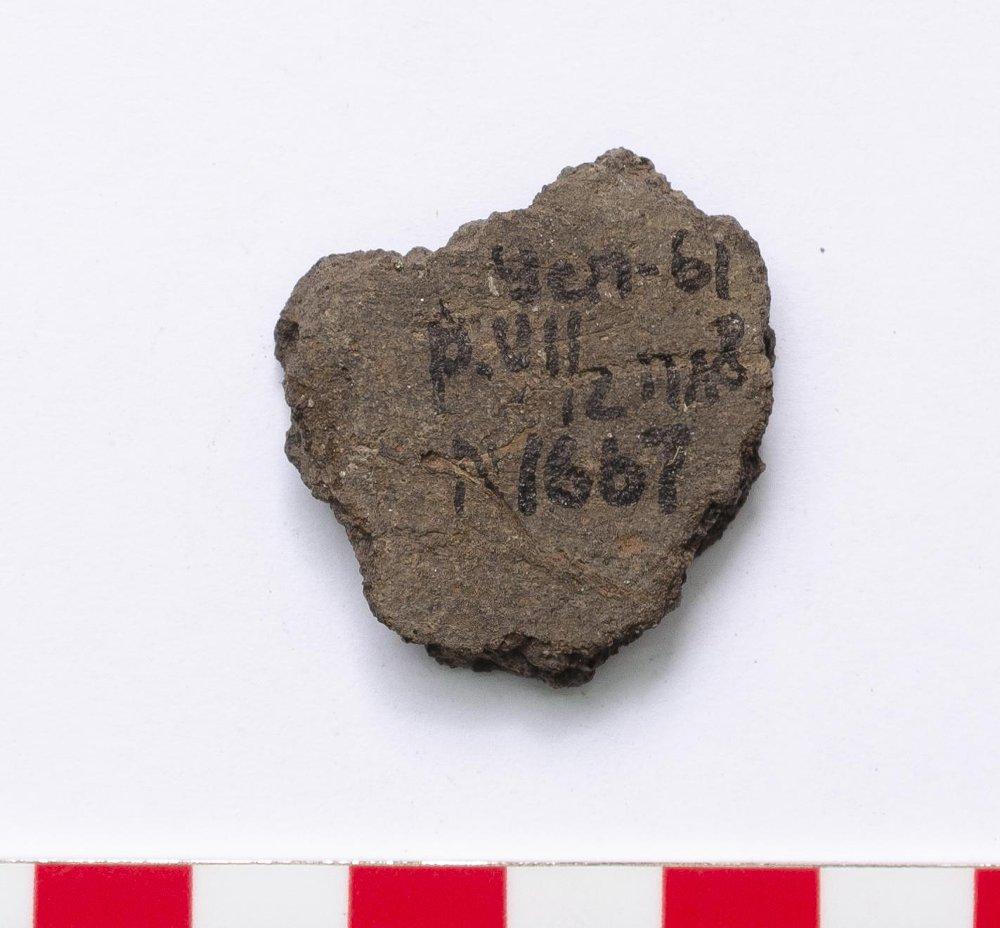 Чел-61
р.VII
12 пл 8
N 1667